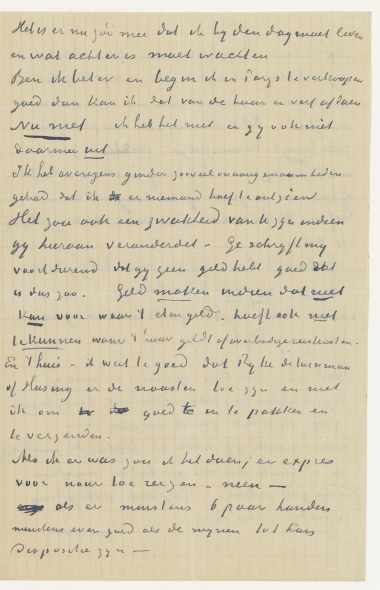 Het is er nu zóó mee dat ik by den dag moet leven
en wat achter is moet wachten
Ben ik beter en begin ik in Parys te verkoopen
goed dan kan ik dat van de huur en verf afdoen
Nu niet ik heb het niet en gy ook niet
daarmee uit
Ik heb overigens ginder zooveel onaangenaamheden
gehad dat ik er niemand hoef te ontzien
Het zou ook een zwakheid van U zyn indien
gy hieraan veranderdet – Ge schryft my
voortdurend dat gy geen geld hebt goed dat
is dus zoo. Geld maken indien dat niet
kan voor waar 't eten geldt. hoeft ook niet
te kunnen waar 't huur geldt of overbodige reiskosten.
En 't huis – ik weet te goed dat Rijke de tuinman
of Huszing er de naasten toe zyn en niet
ik om goed in te pakken en
te verzenden.
Als ik er was zou ik het doen; er expres
voor naar toe reizen – neen —
als er minstens 6 paar handen
minstens even goed als de mynen tot haar
Dispositie zyn —